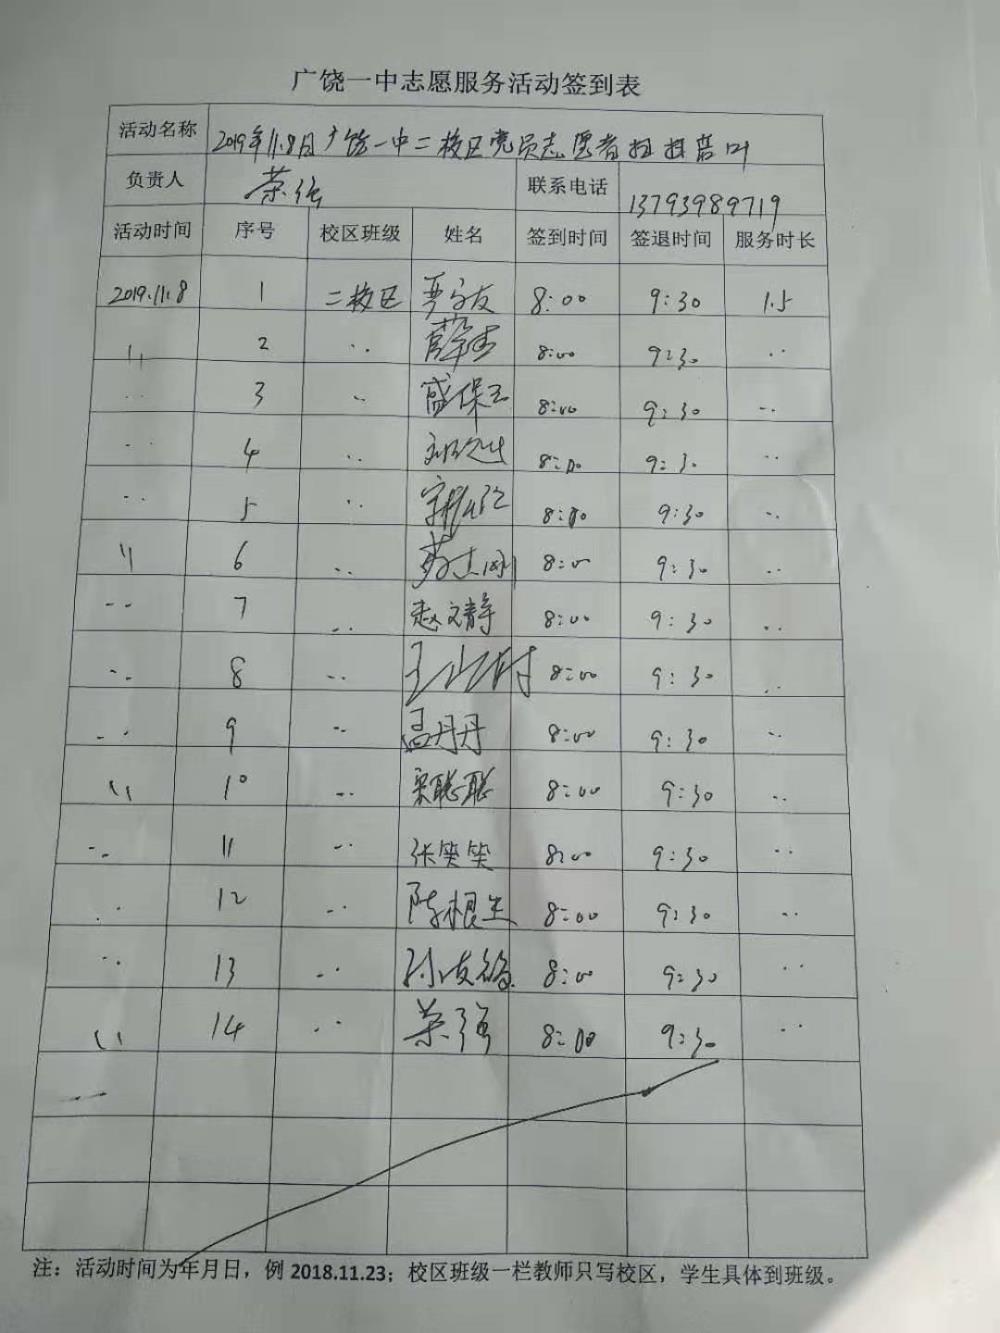 广饶一中志愿服务活动签到表
活动名称 2019年11.8日广饶一中二校区党员志愿者扫落叶
负责人 荣强 联系电话 13793989719
活动时间 序号 校区班级 姓名 签到时间 签退时间 服务时长
2019.11.8 1 二校区 8:00 9:30 1.5
〃 2 〃 薛杰 8:00 9:30 〃
〃 3 〃 盛保 8:00 9:30 〃
〃 4 〃 8:00 9:30 〃
〃 5 〃 8:00 9:30 〃
〃 6 〃 8:00 9:30 〃
〃 7 〃 赵文静 8:00 9:30 〃
〃 8 〃 王 8:00 9:30 〃
〃 9 〃 孟丹丹 8:00 9:30 〃
〃 10 〃 聪聪 8:00 9:30 〃
〃 11 〃 张笑笑 8:00 9:30 〃
〃 12 〃 陈根生 8:00 9:30 〃
〃 13 〃 孙 8:00 9:30 〃
〃 14 〃 荣强 8:00 9:30 〃
注：活动时间为年月日，例 2018.11.23；校区班级一栏教师只写校区，学生具体到班级。